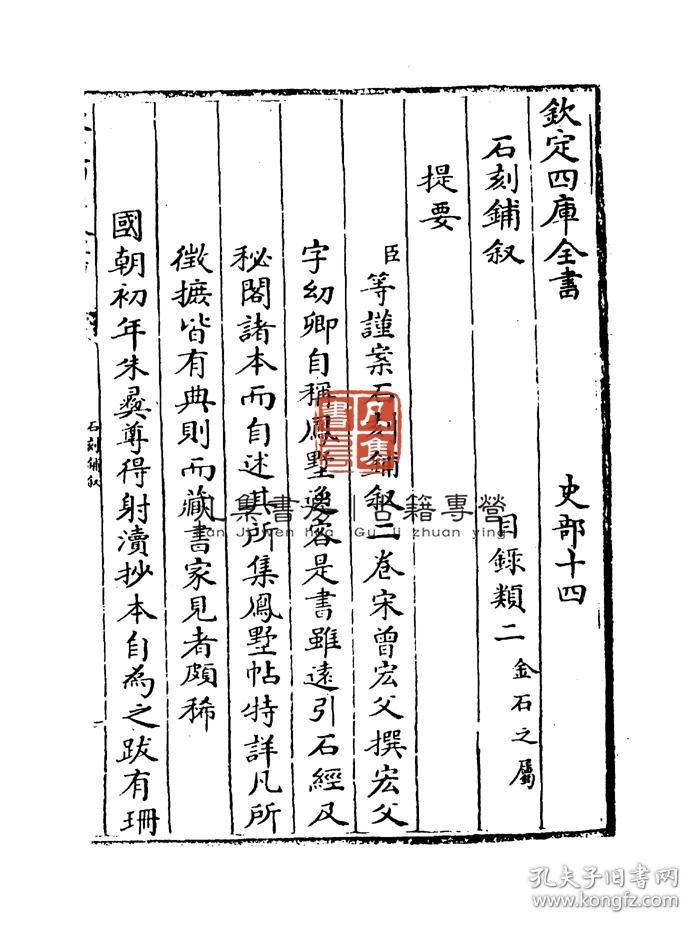 欽定四庫全書 史部十四
石刻鋪叙 目錄類二 金石之屬
提要
臣等謹案石刻鋪叙二卷宋曾宏父撰宏父
字幼卿自稱鳳墅逸客是書雖遠引石經及
秘閣諸本而自述其所集鳳墅帖特詳凡所
徵摭皆有典則而藏書家見者頗稀
國朝初年朱彞尊得射瀆抄本自為之跋有珊
石刻鋪叙
凡集書房 | 古籍專營
Fan Ji Wen hua Gu ji zhuan ying
孔夫子旧书网
www.kongfz.com